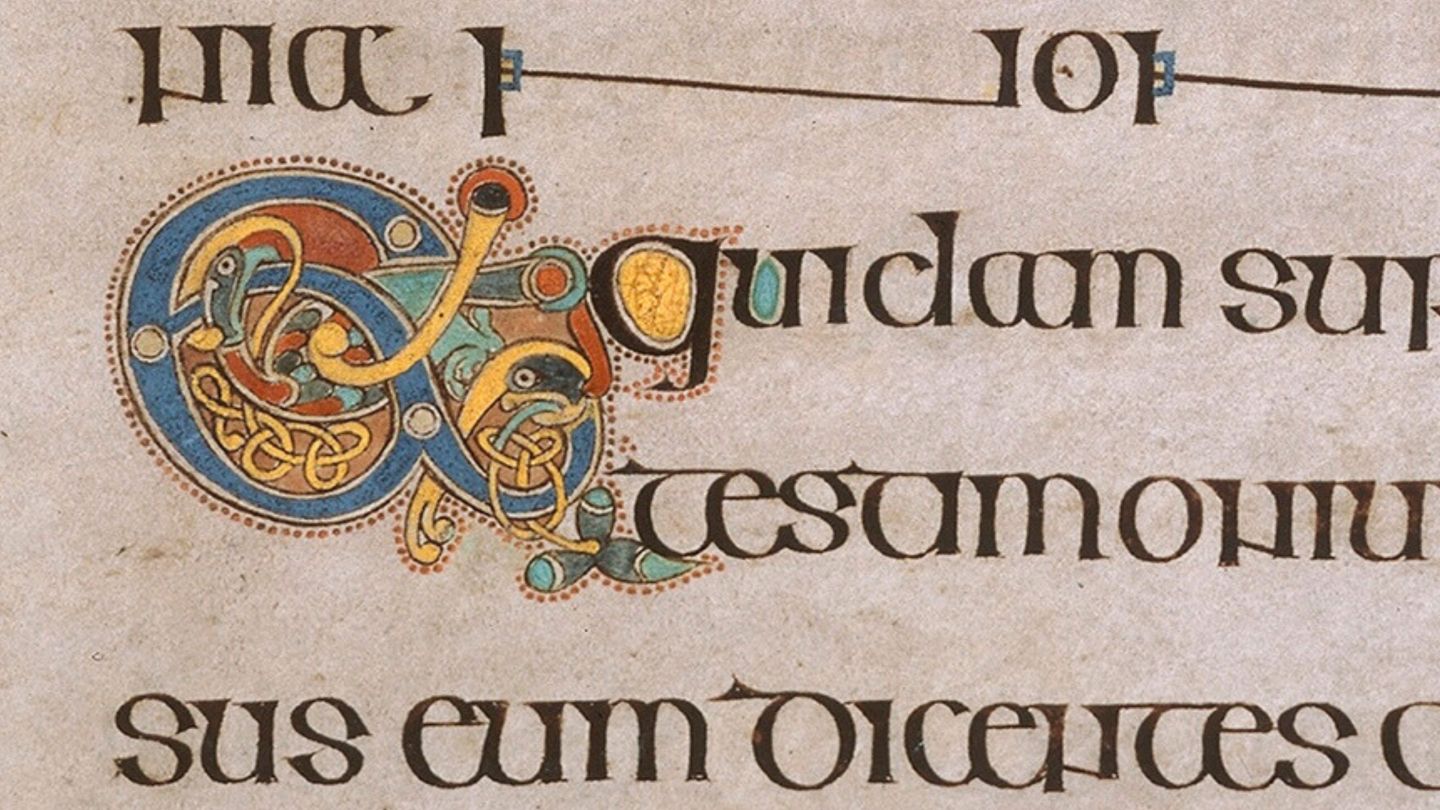 nia non
Et quidam sur
testimoniu
sus eum dicentes